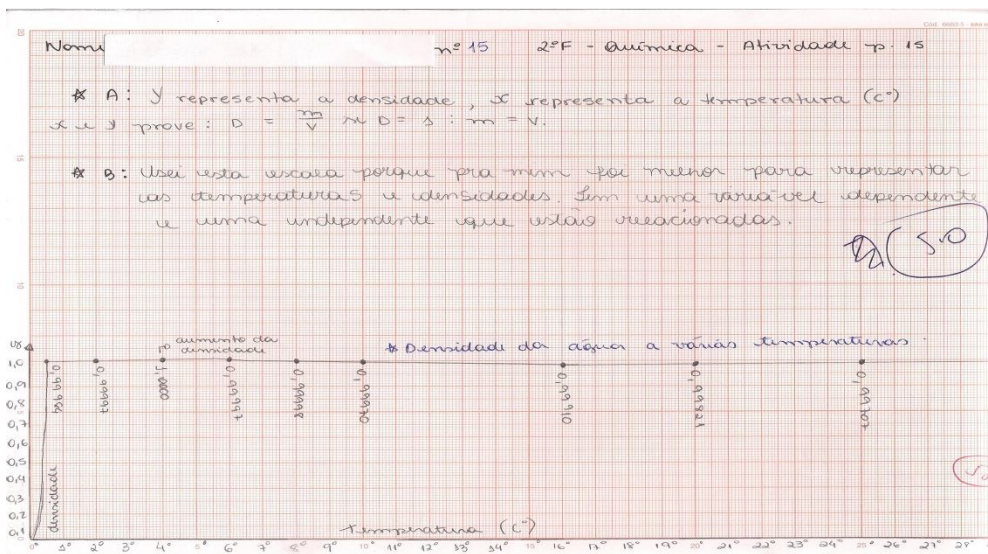 Nome nº 15 2ºF - Química - Atividade p. 15
* A: y representa a densidade, x representa a temperatura (cº)
x e y prove: D = m/V se D = 1 : m = V.
* B: Usei esta escala porque pra mim foi melhor para representar
as temperaturas e densidades. Tem uma variável dependente
e uma independente que estão relacionadas.
5.0
aumento da
densidade
* Densidade da água a várias temperaturas.
1,0
0,9
0,8
0,7
0,6
0,5
0,4
0,3
0,2
0,1
0,99997
1,0000
0,99997
0,99988
0,99970
0,99910
0,99821
0,99707
densidade
temperatura (cº)
1º 2º 3º 4º 6º 7º 8º 9º 10º 11º 12º 13º 14º 16º 17º 18º 19º 20º 21º 22º 23º 24º 26º 27º 28º